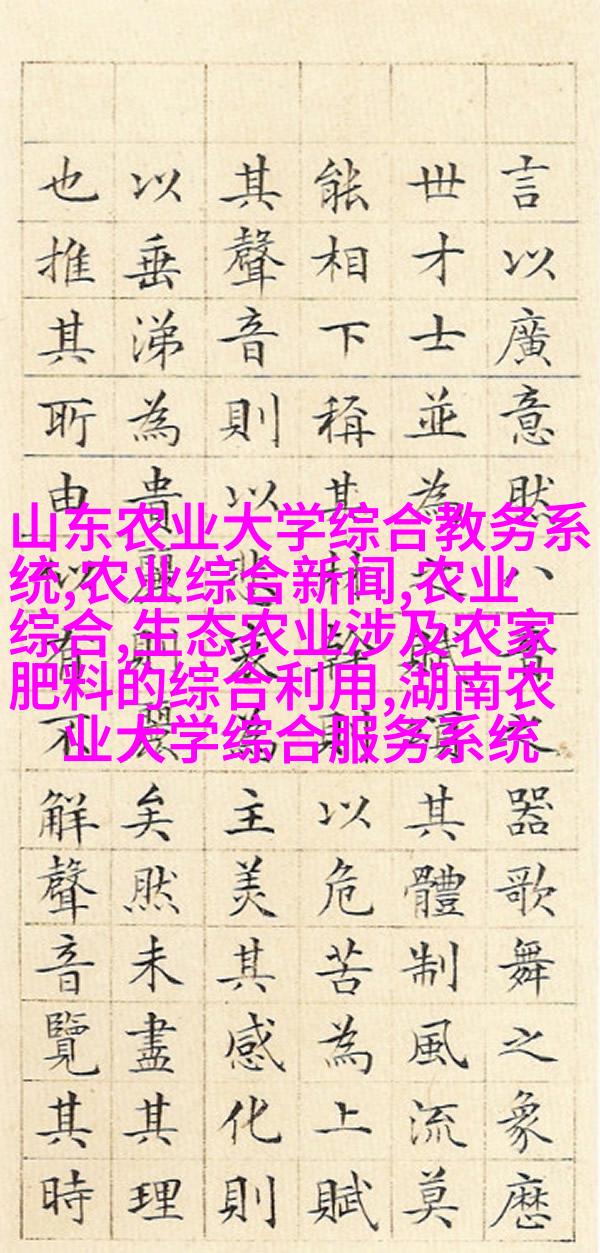 言以廣意然八音之器歌舞之象歷
世才士並為之賦頌其體制風流莫
能相下稱其材幹則以危苦為上賦
其聲音則以悲哀為主美其感化則
以垂涕為貴麗則麗矣然未盡其理
也推其所由似不解聲音覽其時
山东农业大学综合教务系
统,农业综合新闻,农业
综合,生态农业涉及农家
肥料的综合利用,湖南农
业大学综合服务系统